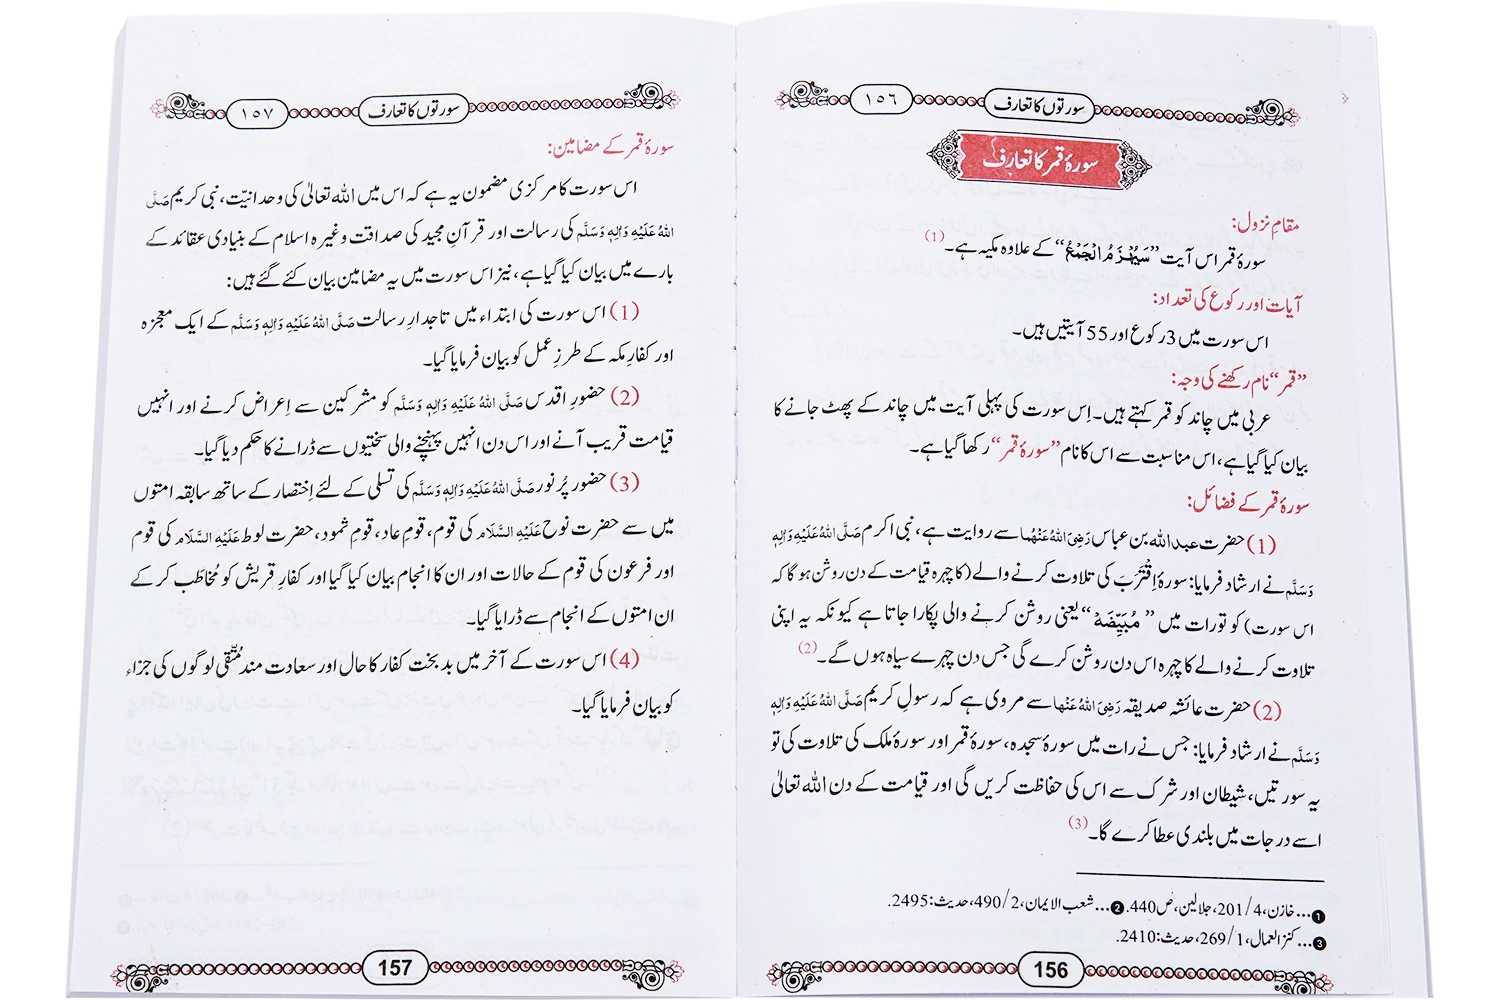 سورتوں کا تعارف
١٥٦
سورۂ قمر کا تعارف
مقامِ نزول:
سورۂ قمر اس آیت ”سَیُهْزَمُ الْجَمْعُ“ کے علاوہ مکیہ ہے۔(1)
آیات اور رکوع کی تعداد:
اس سورت میں 3 رکوع اور 55 آیتیں ہیں۔
”قمر“ نام رکھنے کی وجہ:
عربی میں چاند کو قمر کہتے ہیں۔ اِس سورت کی پہلی آیت میں چاند کے پھٹ جانے کا
بیان کیا گیا ہے، اس مناسبت سے اس کا نام ”سورۂ قمر“ رکھا گیا ہے۔
سورۂ قمر کے فضائل:
(1) حضرت عبد اللہ بن عباس رَضِیَ اللہُ عَنْہُما سے روایت ہے، نبی اکرم صَلَّی اللہُ عَلَیْہِ وَاٰلِہٖ
وَسَلَّم نے ارشاد فرمایا: سورۂ اِقْتَرَبَ کی تلاوت کرنے والے (کا چہرہ قیامت کے دن روشن ہو گا کہ
اس سورت) کو تورات میں ”مُبَیِّضَہْ“ یعنی روشن کرنے والی پکارا جاتا ہے کیونکہ یہ اپنی
تلاوت کرنے والے کا چہرہ اس دن روشن کرے گی جس دن چہرے سیاہ ہوں گے۔(2)
(2) حضرت عائشہ صدیقہ رَضِیَ اللہُ عَنْہا سے مروی ہے کہ رسولِ کریم صَلَّی اللہُ عَلَیْہِ وَاٰلِہٖ
وَسَلَّم نے ارشاد فرمایا: جس نے رات میں سورۂ سجدہ، سورۂ قمر اور سورۂ ملک کی تلاوت کی تو
یہ سورتیں، شیطان اور شرک سے اس کی حفاظت کریں گی اور قیامت کے دن اللہ تعالیٰ
اسے درجات میں بلندی عطا کرے گا۔(3)
❶...خازن، 4/201، جلالین، ص440. ❷...شعب الایمان، 2/490، حدیث: 2495.
❸...کنز العمال، 1/269، حدیث: 2410.
156
سورتوں کا تعارف
١٥٧
سورۂ قمر کے مضامین:
اس سورت کا مرکزی مضمون یہ ہے کہ اس میں اللہ تعالیٰ کی وحدانیّت، نبی کریم صَلَّی
اللہُ عَلَیْہِ وَاٰلِہٖ وَسَلَّم کی رسالت اور قرآنِ مجید کی صداقت وغیرہ اسلام کے بنیادی عقائد کے
بارے میں بیان کیا گیا ہے، نیز اس سورت میں یہ مضامین بیان کئے گئے ہیں:
(1) اس سورت کی ابتداء میں تاجدارِ رسالت صَلَّی اللہُ عَلَیْہِ وَاٰلِہٖ وَسَلَّم کے ایک معجزہ
اور کفارِ مکہ کے طرزِ عمل کو بیان فرمایا گیا۔
(2) حضورِ اقدس صَلَّی اللہُ عَلَیْہِ وَاٰلِہٖ وَسَلَّم کو مشرکین سے اِعراض کرنے اور انہیں
قیامت قریب آنے اور اس دن انہیں پہنچنے والی سختیوں سے ڈرانے کا حکم دیا گیا۔
(3) حضور پُر نور صَلَّی اللہُ عَلَیْہِ وَاٰلِہٖ وَسَلَّم کی تسلی کے لئے اِختصار کے ساتھ سابقہ امتوں
میں سے حضرت نوح عَلَیْہِ السَّلَام کی قوم، قومِ عاد، قومِ ثمود، حضرت لوط عَلَیْہِ السَّلَام کی قوم
اور فرعون کی قوم کے حالات اور ان کا انجام بیان کیا گیا اور کفارِ قریش کو مُخاطَب کر کے
ان امتوں کے انجام سے ڈرایا گیا۔
(4) اس سورت کے آخر میں بد بخت کفار کا حال اور سعادت مند مُتَّقی لوگوں کی جزاء
کو بیان فرمایا گیا۔
157